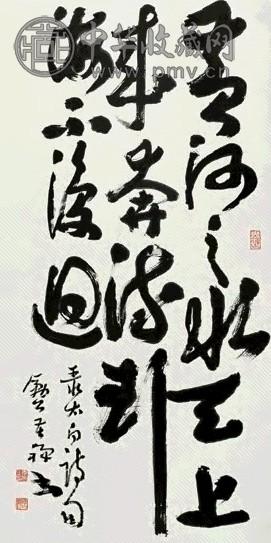 中华收藏网
www.pmv.cn
黄河之水天上
来奔流到
海不復迴
录太白诗句
书